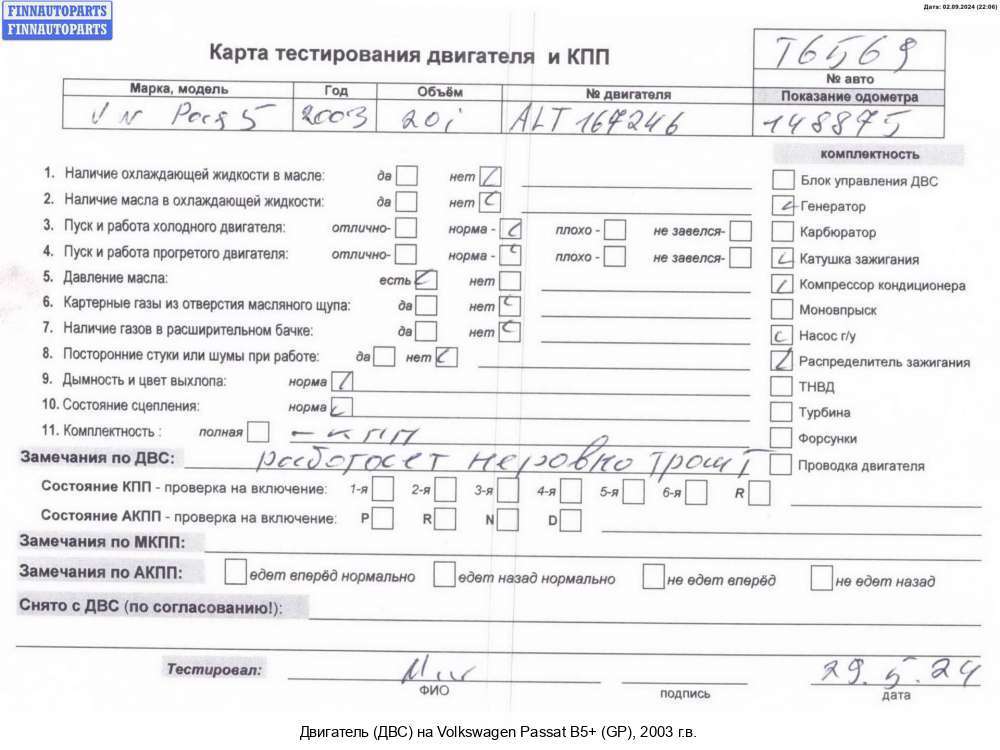 FINNAUTOPARTS
FINNAUTOPARTS
Дата: 02.09.2024 (22:06)
Карта тестирования двигателя и КПП
T6569
№ авто
Марка, модель Год Объём № двигателя Показание одометра
2003 20i ALT 167246 148875
комплектность
1. Наличие охлаждающей жидкости в масле: да нет
Блок управления ДВС
2. Наличие масла в охлаждающей жидкости: да нет
Генератор
3. Пуск и работа холодного двигателя: отлично- норма - плохо - не завелся-
Карбюратор
4. Пуск и работа прогретого двигателя: отлично- норма - плохо - не завелся-
Катушка зажигания
5. Давление масла: есть нет
Компрессор кондиционера
6. Картерные газы из отверстия масляного щупа: да нет
Моновпрыск
7. Наличие газов в расширительном бачке: да нет
Насос г/у
8. Посторонние стуки или шумы при работе: да нет
Распределитель зажигания
9. Дымность и цвет выхлопа: норма
ТНВД
10. Состояние сцепления: норма
Турбина
11. Комплектность : полная - КПП
Форсунки
Замечания по ДВС: работает неровно троит
Проводка двигателя
Состояние КПП - проверка на включение: 1-я 2-я 3-я 4-я 5-я 6-я R
Состояние АКПП - проверка на включение: P R N D
Замечания по МКПП:
Замечания по АКПП: едет вперёд нормально едет назад нормально не едет вперёд не едет назад
Снято с ДВС (по согласованию!):
Тестировал: 29.5.24
ФИО подпись дата
Двигатель (ДВС) на Volkswagen Passat B5+ (GP), 2003 г.в.